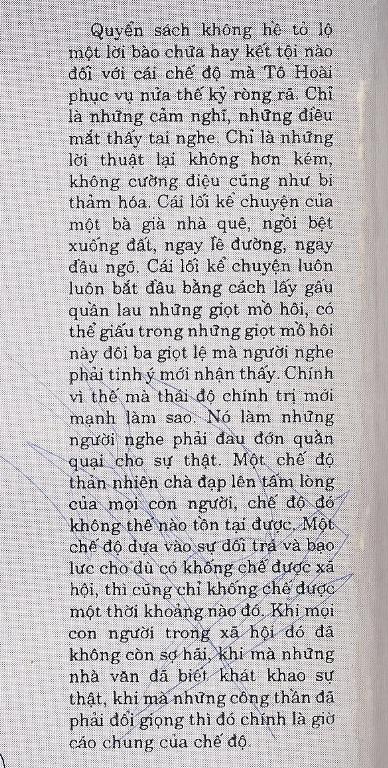 Quyển sách không hề tỏ lộ
một lời bào chữa hay kết tội nào
đối với cái chế độ mà Tô Hoài
phục vụ nửa thế kỷ ròng rã. Chỉ
là những cảm nghĩ, những điều
mắt thấy tai nghe. Chỉ là những
lời thuật lại không hơn kém,
không cường điệu cũng như bi
thảm hóa. Cái lối kể chuyện của
một bà già nhà quê, ngồi bệt
xuống đất, ngay lề đường, ngay
đầu ngõ. Cái lối kể chuyện luôn
luôn bắt đầu bằng cách lấy gấu
quần lau những giọt mồ hôi, có
thể giấu trong những giọt mồ hôi
này đôi ba giọt lệ mà người nghe
phải tinh ý mới nhận thấy. Chính
vì thế mà thái độ chính trị mới
mạnh làm sao. Nó làm những
người nghe phải đau đớn quằn
quại cho sự thật. Một chế độ
thản nhiên chà đạp lên tấm lòng
của mọi con người, chế độ đó
không thể nào tồn tại được. Một
chế độ dựa vào sự dối trá và bạo
lực cho dù có khống chế được xã
hội, thì cũng chỉ khống chế được
một thời khoảng nào đó. Khi mọi
con người trong xã hội đó đã
không còn sợ hãi, khi mà những
nhà văn đã biết khát khao sự
thật, khi mà những công thần đã
phải đổi giọng thì đó chính là giờ
cáo chung của chế độ.